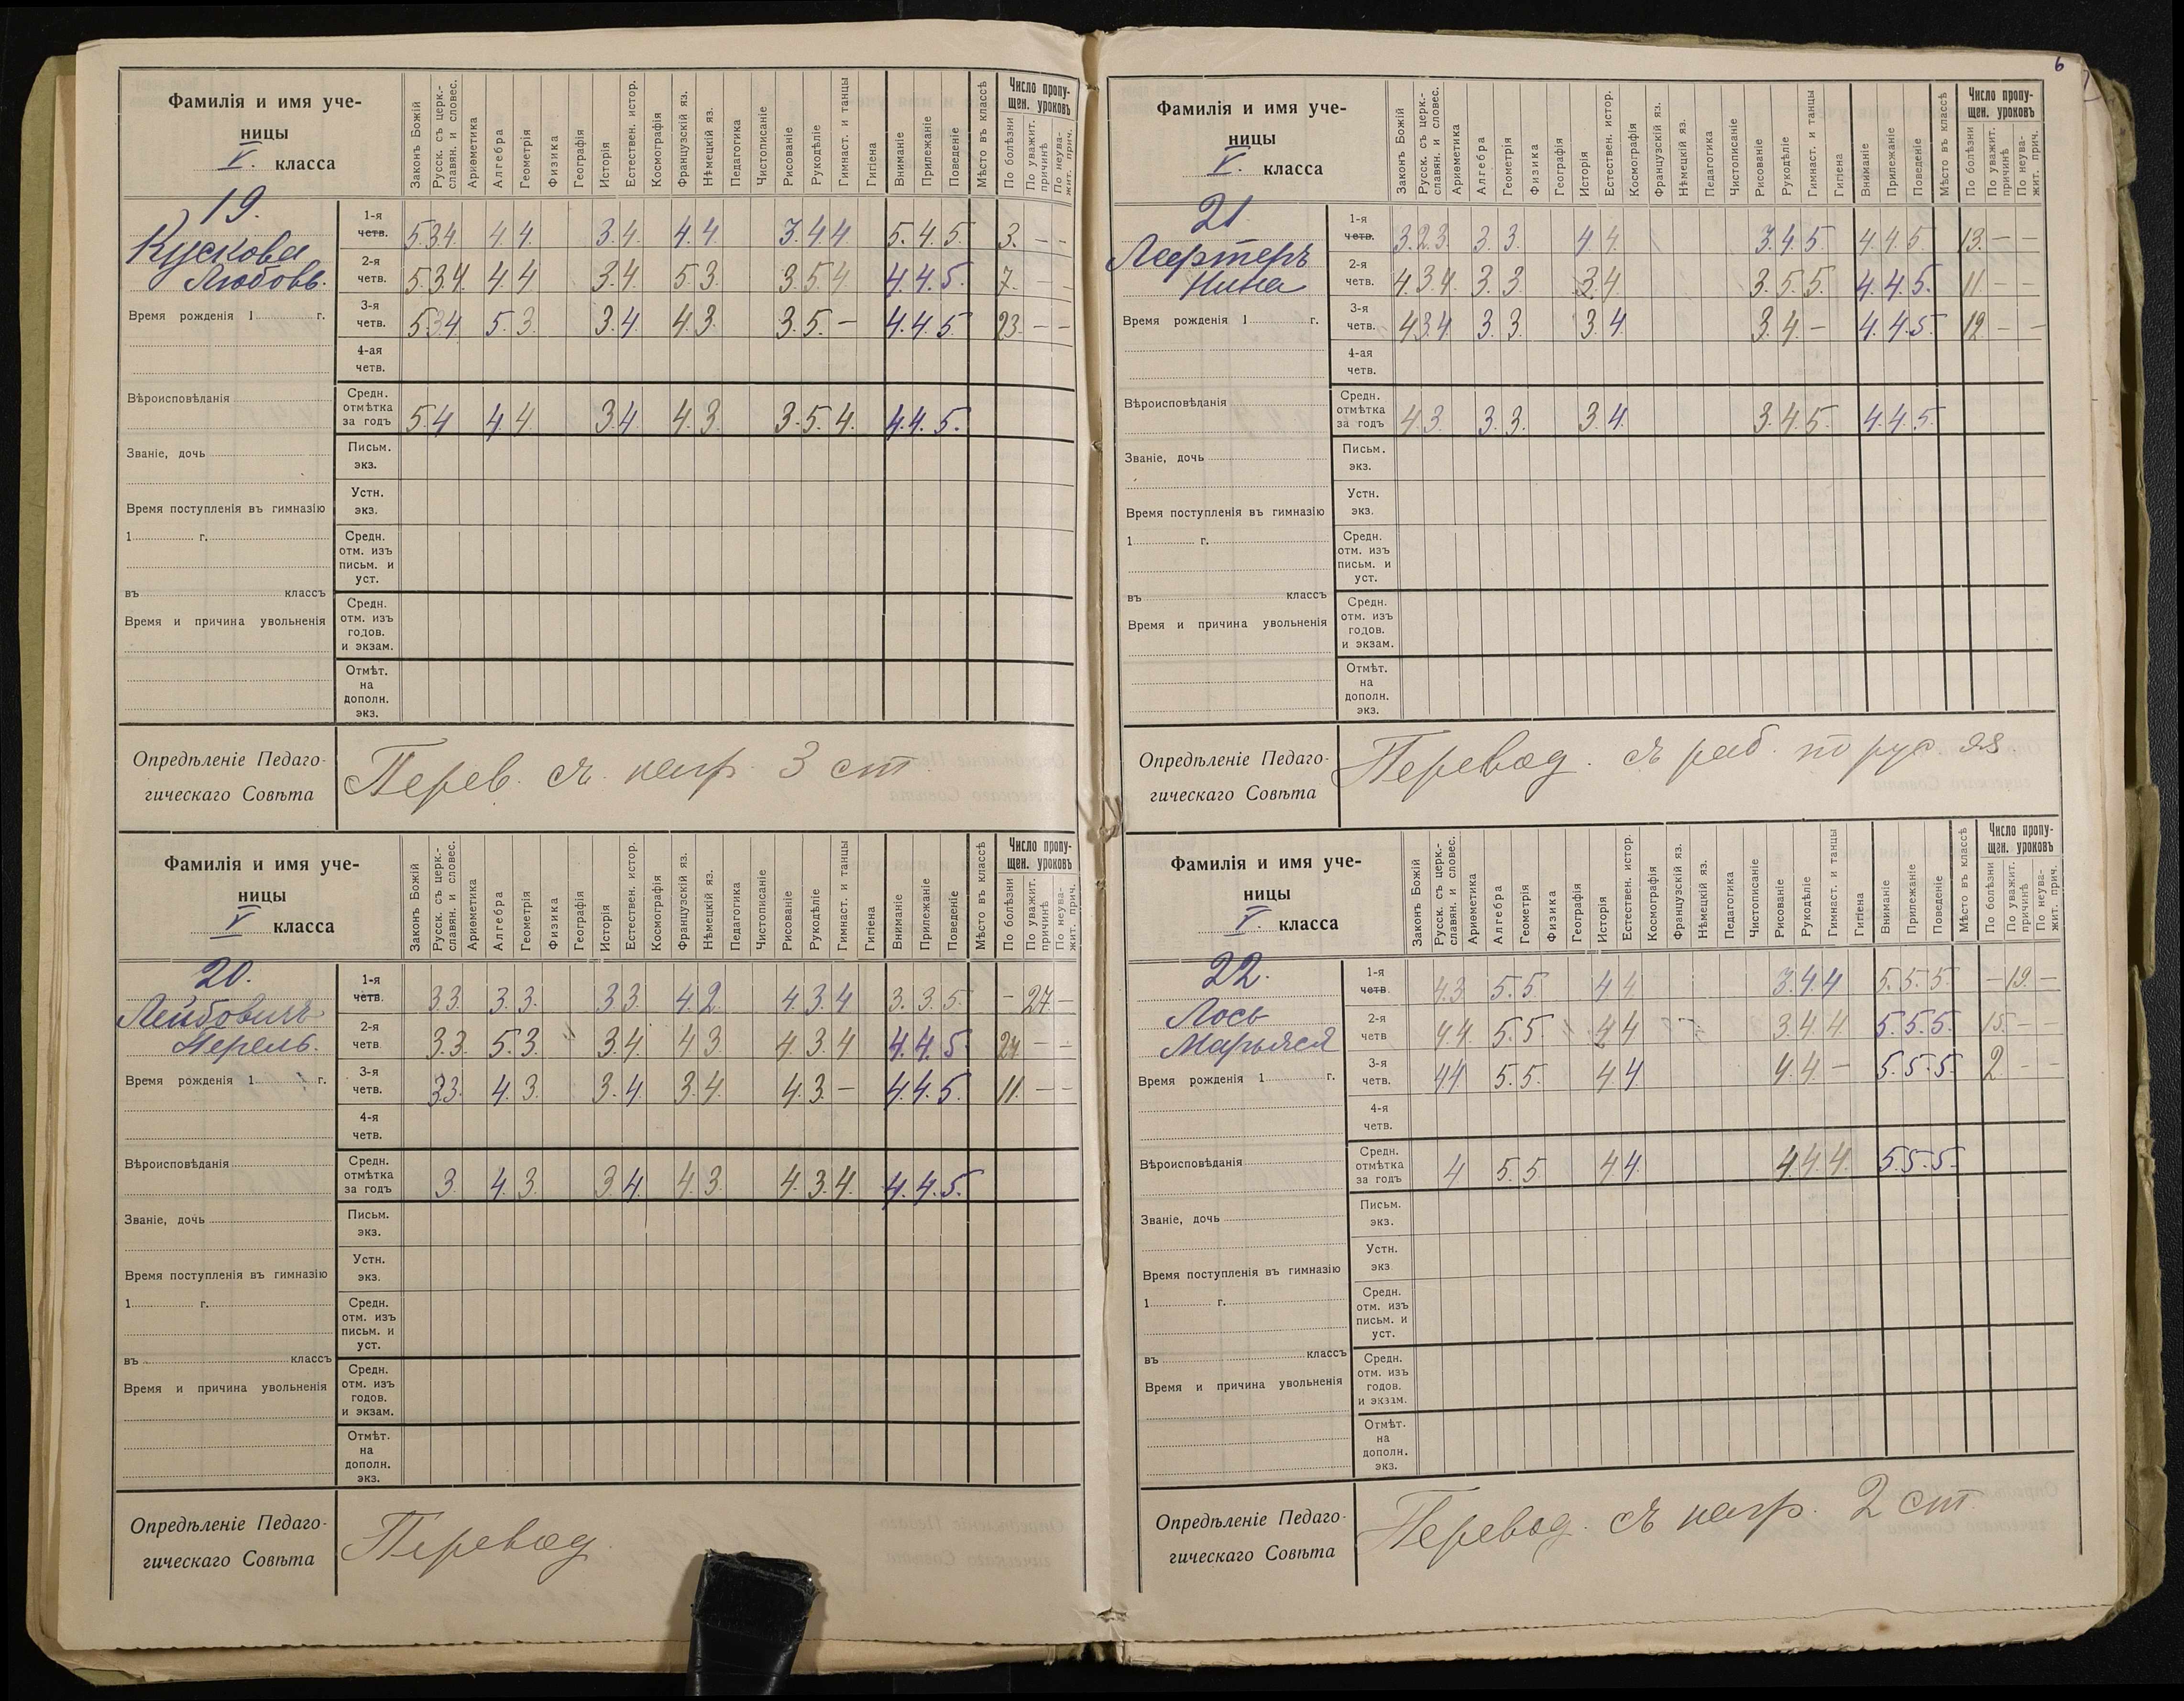 Фамилія и имя уче-
ницы
V. класса
Законъ Божій
Русск. съ церк.-
славян. и словес.
Ариѳметика
Алгебра
Геометрія
Физика
Географія
Исторія
Естествен. истор.
Космографія
Французскій яз.
Нѣмецкій яз.
Педагогика
Чистописаніе
Рисованіе
Рукодѣліе
Гимнаст. и танцы
Гигіена
Вниманіе
Прилежаніе
Поведеніе
Мѣсто въ классѣ
Число пропу-
щен. уроковъ
По болѣзни
По уважит.
причинѣ
По неува-
жит. прич.
19.
Кускова
Любовь.
1-я
четв. 5.3.4. 4 4 3.4. 4.4. 3.4.4 5.4.5. 3. - -
2-я
четв. 5.3.4. 4 4 3.4. 5.3. 3 5 4 4.4.5. 7. - -
3-я
четв. 5.3.4 5.3. 3.4. 4.3. 3.5. - 4.4.5 23. - -
Время рожденія 1 г.
4-ая
четв.
Вѣроисповѣданія
Средн.
отмѣтка
за годъ 5.4. 4 4. 3.4. 4.3. 3.5.4. 4.4.5.
Званіе, дочь
Письм.
экз.
Устн.
экз.
Время поступленія въ гимназію
1 г.
Средн.
отм. изъ
письм. и
уст.
въ классъ
Время и причина увольненія
Средн.
отм. изъ
годов.
и экзам.
Отмѣт.
на
дополн.
экз.
Опредѣленіе Педаго-
гическаго Совѣта
Перев. съ нагр. 3 ст.
Фамилія и имя уче-
ницы
V класса
Законъ Божій
Русск. съ церк.-
славян. и словес.
Ариѳметика
Алгебра
Геометрія
Физика
Географія
Исторія
Естествен. истор.
Космографія
Французскій яз.
Нѣмецкій яз.
Педагогика
Чистописаніе
Рисованіе
Рукодѣліе
Гимнаст. и танцы
Гигіена
Вниманіе
Прилежаніе
Поведеніе
Мѣсто въ классѣ
Число пропу-
щен. уроковъ
По болѣзни
По уважит.
причинѣ
По неува-
жит. прич.
20.
Лейбовичъ
Перель.
1-я
четв. 3.3. 3.3. 3.3. 4.2. 4.3.4 3.3.5. - 27. -
2-я
четв 3.3. 5.3. 3.4. 4 3. 4.3.4 4.4.5. - -
3-я
четв. 3.3. 4.3. 3.4. 3.4. 4.3. - 4.4.5. 11. - -
Время рожденія 1 г.
4-я
четв.
Вѣроисповѣданія
Средн.
отмѣтка
за годъ 3. 4.3. 3 4. 4.3. 4.3.4. 4.4.5.
Званіе, дочь
Письм.
экз.
Устн.
экз.
Время поступленія въ гимназію
1 г.
Средн.
отм. изъ
письм. и
уст.
въ классъ
Время и причина увольненія
Средн.
отм. изъ
годов.
и экзам.
Отмѣт.
на
дополн.
экз.
Опредѣленіе Педаго-
гическаго Совѣта
Перевод.
6
Фамилія и имя уче-
ницы
V. класса
Законъ Божій
Русск. съ церк.-
славян. и словес.
Ариѳметика
Алгебра
Геометрія
Физика
Географія
Исторія
Естествен. истор.
Космографія
Французскій яз.
Нѣмецкій яз.
Педагогика
Чистописаніе
Рисованіе
Рукодѣліе
Гимнаст. и танцы
Гигіена
Вниманіе
Прилежаніе
Поведеніе
Мѣсто въ классѣ
Число пропу-
щен. уроковъ
По болѣзни
По уважит.
причинѣ
По неува-
жит. прич.
21.
Лефтеръ
Нина
1-я
четв. 3.2.3. 3.3. 4 4. 3.4.5. 4.4.5 13. - -
2-я
четв. 4.3.4. 3.3. 3.4. 3.5.5. 4.4.5. 11 - -
3-я
четв. 4 3.4 3.3. 3.4 3.4. - 4.4.5. 12. - -
Время рожденія 1 г.
4-ая
четв.
Вѣроисповѣданія
Средн.
отмѣтка
за годъ 4.3. 3.3. 3.4. 3.4.5. 4.4.5.
Званіе, дочь
Письм.
экз.
Устн.
экз.
Время поступленія въ гимназію
1 г.
Средн.
отм. изъ
письм. и
уст.
въ классъ
Время и причина увольненія
Средн.
отм. изъ
годов.
и экзам.
Отмѣт.
на
дополн.
экз.
Опредѣленіе Педаго-
гическаго Совѣта
Перевод. съ раб. по рус. яз.
Фамилія и имя уче-
ницы
V. класса
Законъ Божій
Русск. съ церк.-
славян. и словес.
Ариѳметика
Алгебра
Геометрія
Физика
Географія
Исторія
Естествен. истор.
Космографія
Французскій яз.
Нѣмецкій яз.
Педагогика
Чистописаніе
Рисованіе
Рукодѣліе
Гимнаст. и танцы
Гигіена
Вниманіе
Прилежаніе
Поведеніе
Мѣсто въ классѣ
Число пропу-
щен. уроковъ
По болѣзни
По уважит.
причинѣ
По неува-
жит. прич.
22.
Лось
Марьяся
1-я
четв. 4.3 5.5. 4 4. 3.4.4 5.5.5 - 19. -
2-я
четв 4.4. 5.5. 4 4 3.4.4. 5.5.5. 15. - -
3-я
четв. 4.4. 5.5. 4 4. 4.4. - 5.5.5. 2 - -
Время рожденія 1 г.
4-я
четв.
Вѣроисповѣданія
Средн.
отмѣтка
за годъ 4 5.5. 4 4. 4 4.4. 5.5.5.
Званіе, дочь
Письм.
экз.
Устн.
экз
Время поступленія въ гимназію
1 г.
Средн.
отм. изъ
письм. и
уст.
въ классъ
Время и причина увольненія
Средн.
отм. изъ
годов.
и экзам.
Отмѣт.
на
дополн.
экз.
Опредѣленіе Педаго-
гическаго Совѣта
Перевод. съ нагр. 2 ст.